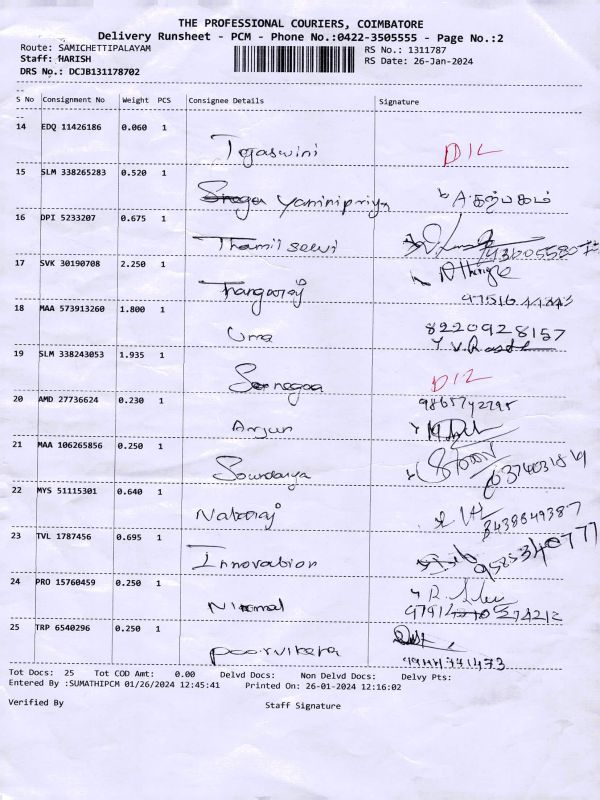 THE PROFESSIONAL COURIERS, COIMBATORE
Delivery Runsheet - PCM - Phone No.:0422-3505555 - Page No.:2
Route: SAMICHETTIPALAYAM RS No.: 1311787
Staff: HARISH RS Date: 26-Jan-2024
DRS No.: DCJB131178702
S No Consignment No Weight PCS Consignee Details Signature
14 EDQ 11426186 0.060 1
Tejaswini DIL
15 SLM 338265283 0.520 1
Yaminipriya A.கற்பகம்
16 DPI 5233207 0.675 1
Thamilselvi
17 SVK 30190708 2.250 1
Thangaraj
18 MAA 573913260 1.800 1
Uma 8220928157
19 SLM 338243053 1.935 1
DIL
20 AMD 27736624 0.230 1
Arjun
21 MAA 106265856 0.250 1
Soundarya
22 MYS 51115301 0.640 1
Nataraj 8438649387
23 TVL 1787456 0.695 1
Innovation
24 PRO 15760459 0.250 1
Nirmal
25 TRP 6540296 0.250 1
poorvikera
Tot Docs: 25 Tot COD Amt: 0.00 Delvd Docs: Non Delvd Docs: Delvy Pts:
Entered By :SUMATHIPCM 01/26/2024 12:45:41 Printed On: 26-01-2024 12:16:02
Verified By Staff Signature